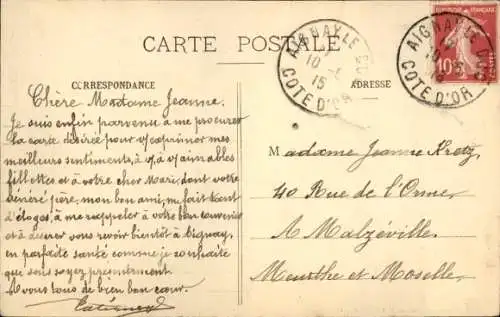 CARTE POSTALE
CORRESPONDANCE
ADRESSE
AIGNAY-LE-DUC
COTE D'OR
15
AIGNAY-LE-DUC
COTE D'OR
10
Chère Madame Jeanne.
Je suis enfin parvenue à me procurer
la carte désirée pour v/ exprimer mes
meilleurs sentiments, à v/, à v/ aimables
fillettes et à votre cher Mari, dont votre
vénéré père, mon bon ami, me fait tant
d'éloges, à me rappeler à votre bon souvenir
et à désirer vous revoir bientôt à Aignay,
en parfaite santé comme je souhaite
que vous soyez présentement.
A vous tous de bien bon cœur.
Madame Jeanne
40 Rue de l'Orme
A Malzéville.
Meurthe et Moselle.